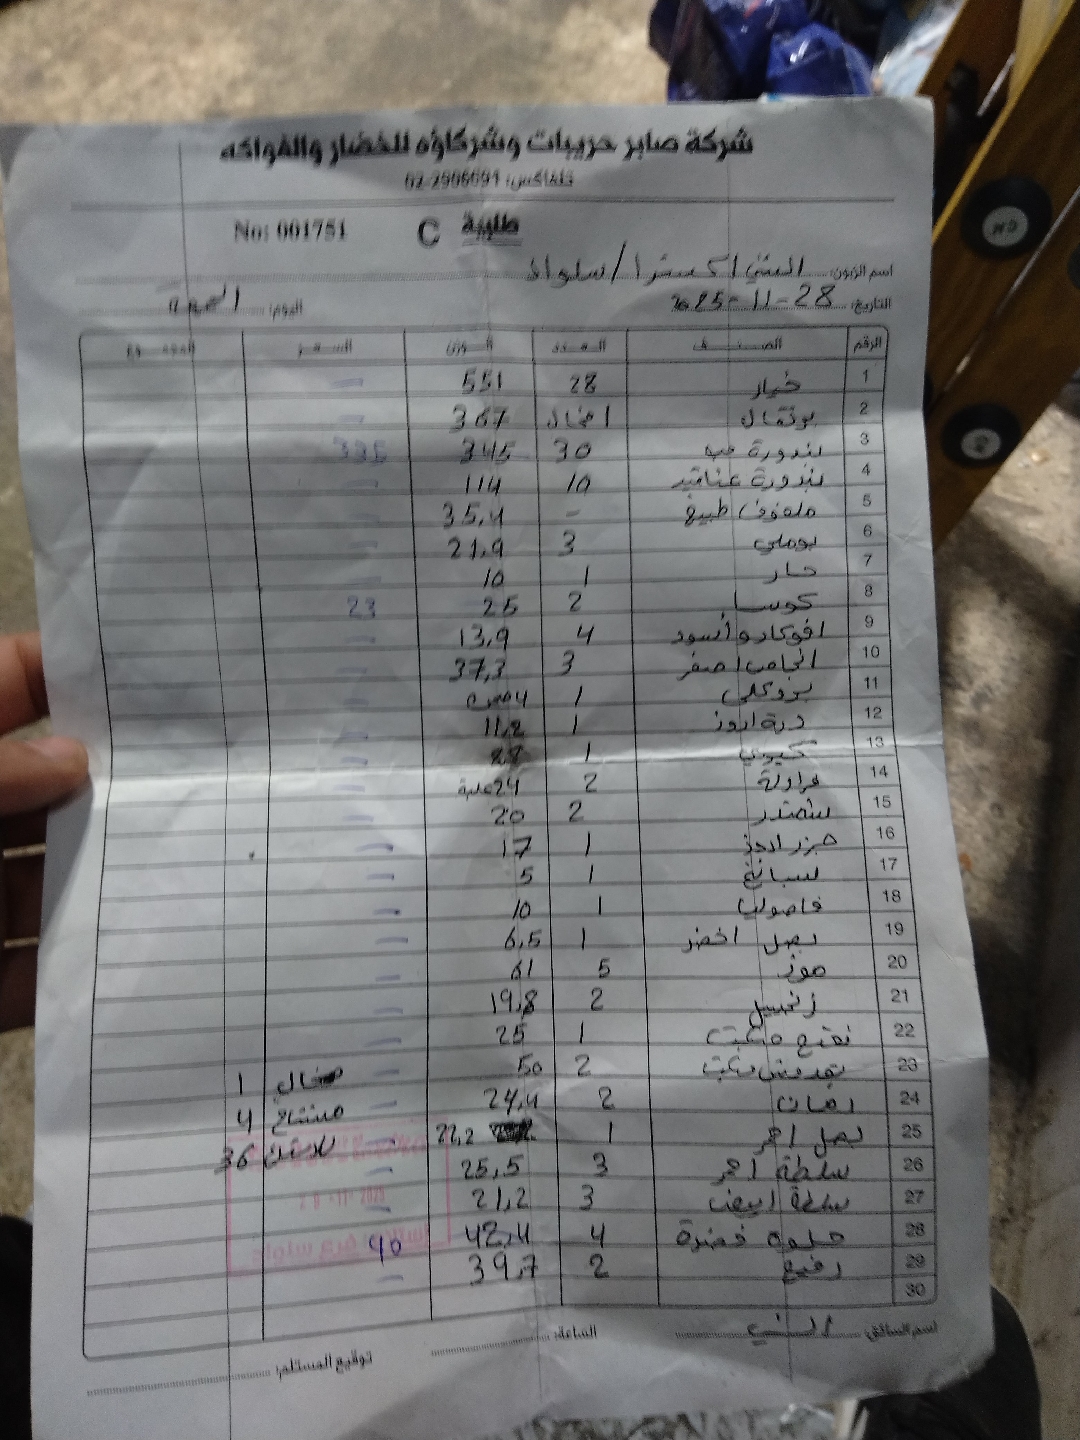 شركة صابر حريبات وشركاؤه للخضار والفواكه
تلفاكس: 02-2906691
طلبية C No: 001751
اسم الزبون: السني اكسترا / سلواد
التاريخ: 28-11-2025 اليوم: الجمعة
الرقم الصنف العدد الوزن السعر المجموع
1 خيار 28 551
2 برتقال 1 مخال 367
3 بندورة حب 30 345 335
4 بندورة عناقيد 10 114
5 ملفوف طبيخ - 35,4
6 بوملي 3 21,9
7 حار 1 10
8 كوسا 2 25 23
9 افوكادو أسود 4 13,9
10 انجاص اصفر 3 37,3
11 بروكلي 1
12 درة ابوز 1 11,2
13 كيوي 1
14 فراولة 2 24 علبة
15 شمندر 2 20
16 جزر 1 17
17 سبانخ 1 5
18 فاصوليا 1 10
19 بصل اخضر 1 6,5
20 موز 5 61
21 زنجبيل 2 19,8
22 نعنع 1 25
23 بقدونس 2 50 مخال 1
24 رمان 2 24,4 مشتاح 4
25 بصل احمر 1 22,2 36
26 سلطة احمر 3 25,5
27 سلطة ابيض 3 21,2
28 حلوه خضرة 4 42,4 40
29 رفيع 2 39,7
30
اسم السائق: السني الساعة: توقيع المستلم: